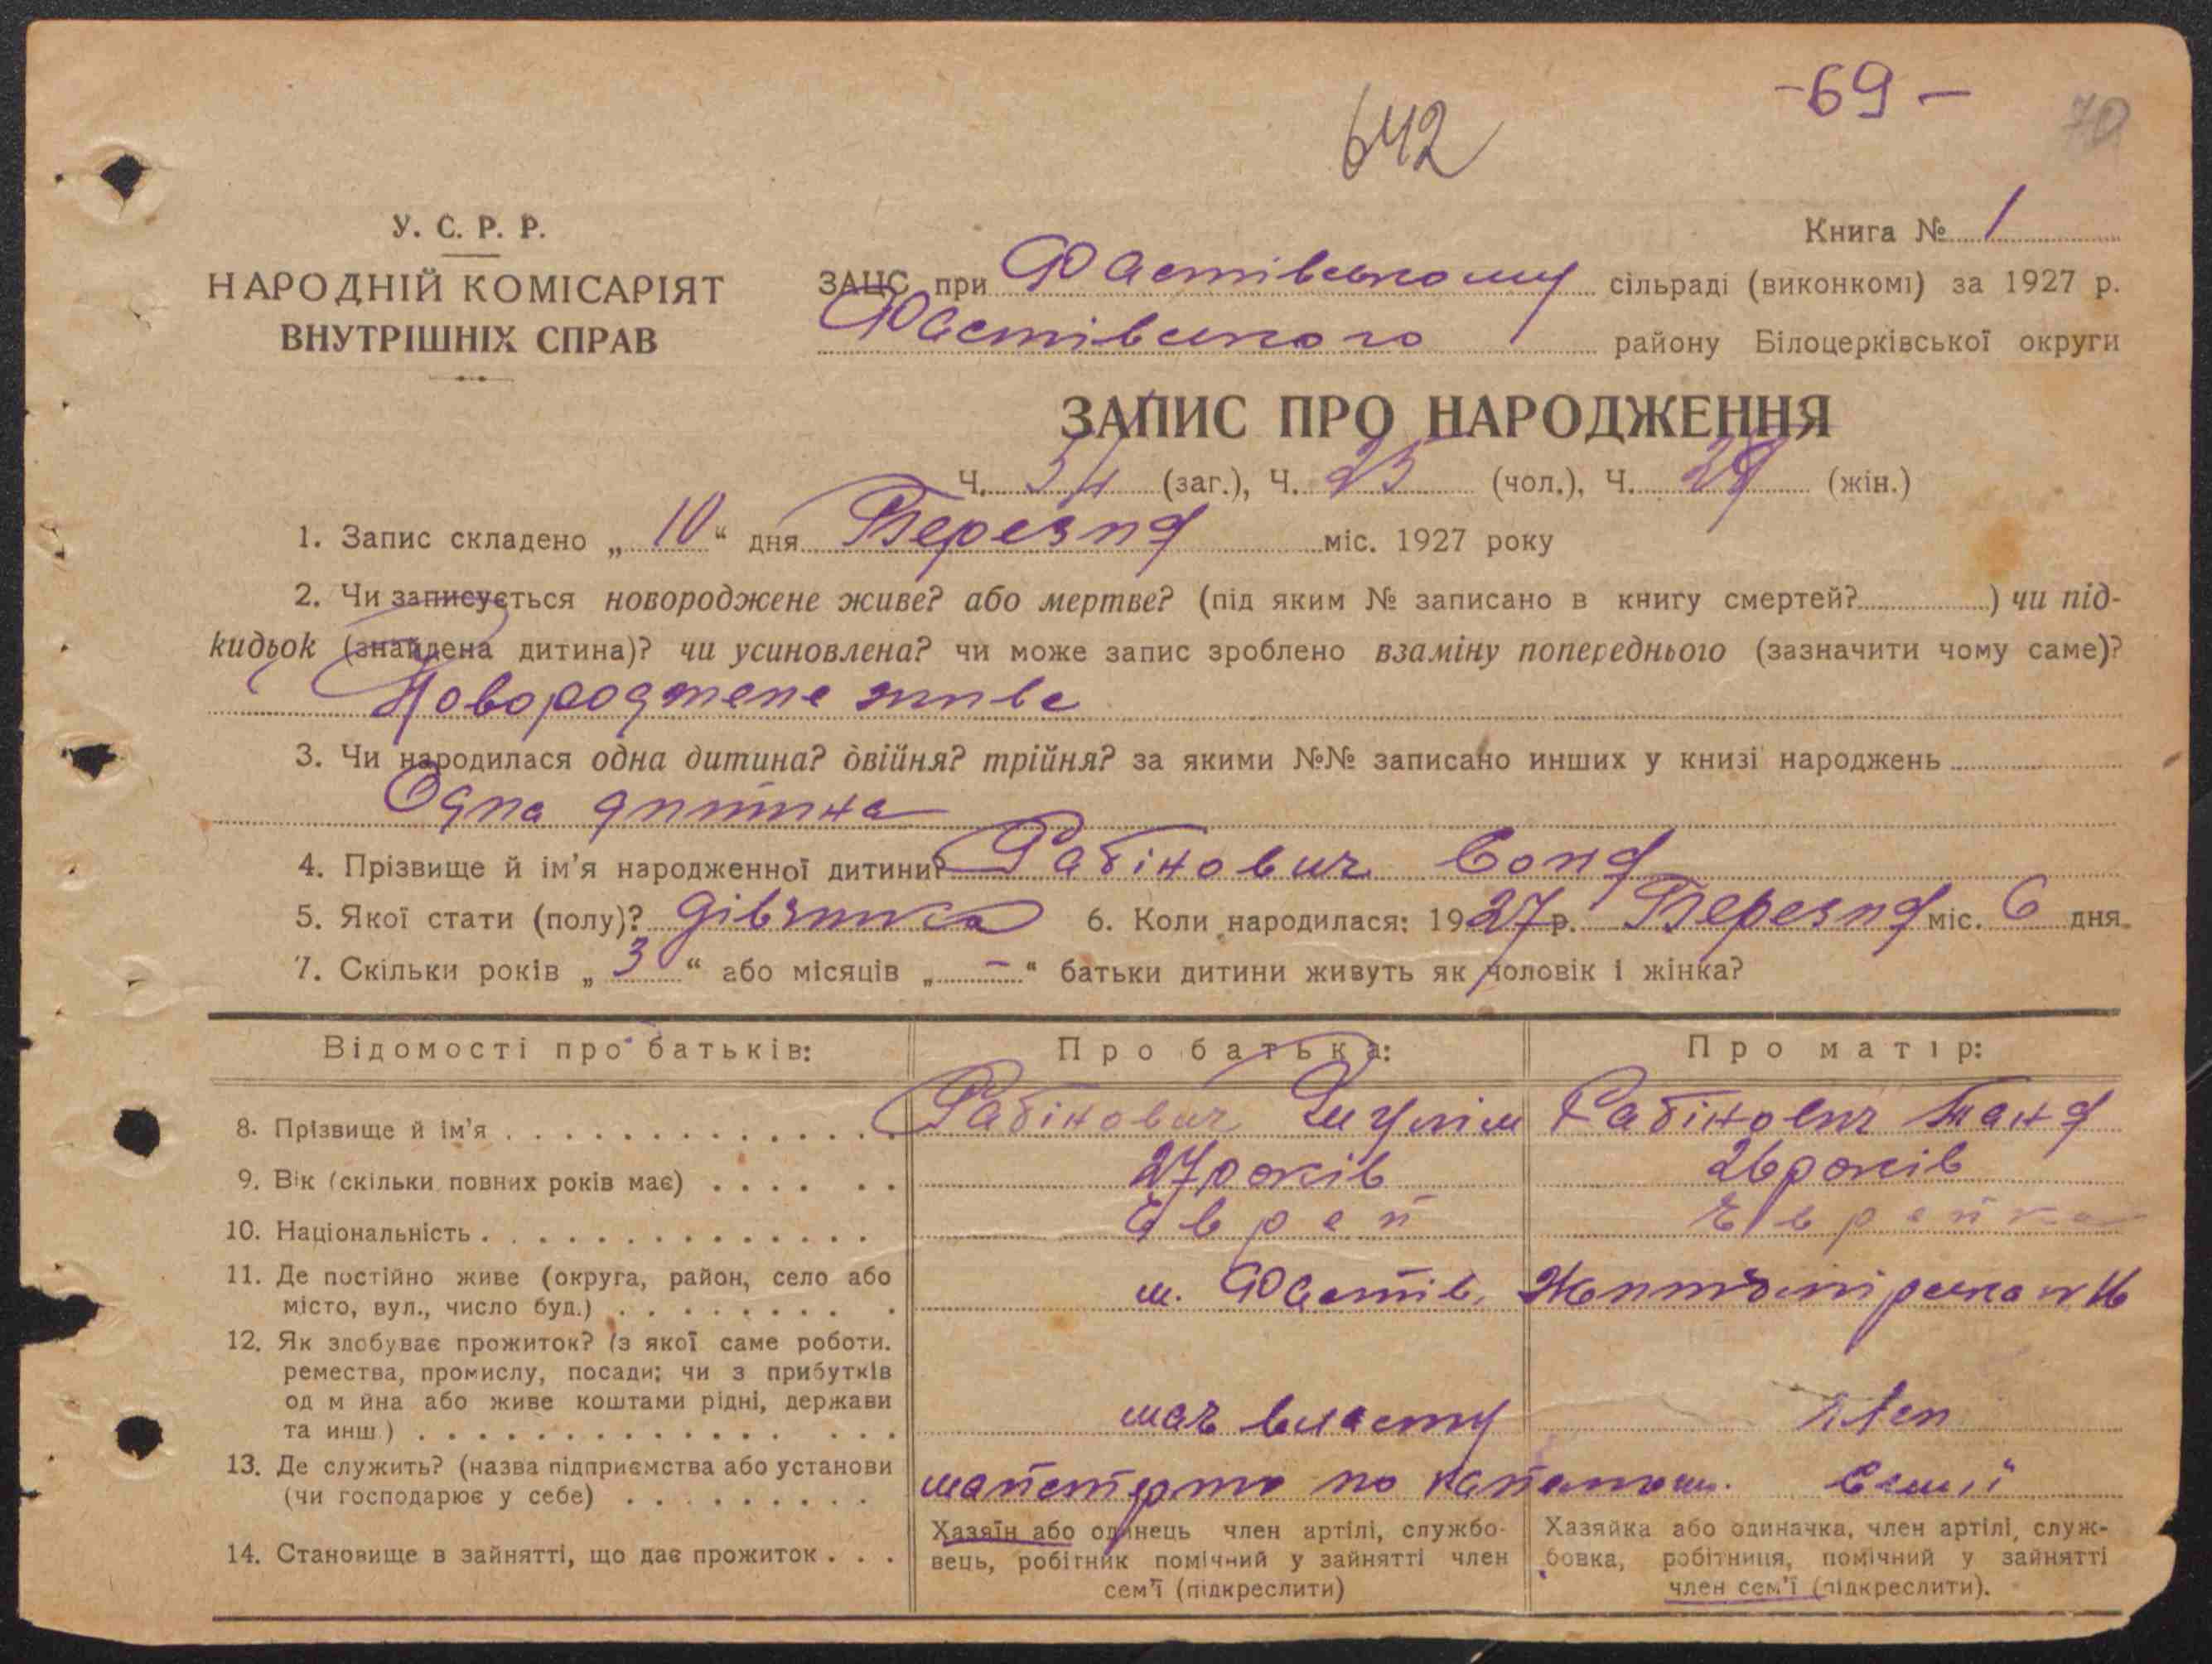 -69-
70
642
У. С. Р. Р.
Книга № 1
НАРОДНІЙ КОМІСАРІЯТ
ВНУТРІШНІХ СПРАВ
ЗАЦС при Фастівському сільраді (виконкомі) за 1927 р.
Фастівського району Білоцерківської округи
ЗАПИС ПРО НАРОДЖЕННЯ
Ч. 54 (заг.), Ч. 25 (чол.), Ч. 29 (жін.)
1. Запис складено „ 10 “ дня Березня міс. 1927 року
2. Чи записується новороджене живе? або мертве? (під яким № записано в книгу смертей? ) чи під-
кидьок (знайдена дитина)? чи усиновлена? чи може запис зроблено взаміну попереднього (зазначити чому саме)?
Новороджене живе
3. Чи народилася одна дитина? двійня? трійня? за якими №№ записано инших у книзі народжень
Одна дитина
4. Прізвище й ім’я народженної дитини? Рабінович Соня
5. Якої стати (полу)? дівчинка 6. Коли народилася: 1927 р. Березня міс. 6 дня
7. Скільки років „ 3 “ або місяців „ – “ батьки дитини живуть як чоловік і жінка?
Відомості про батьків: Про батька: Про матір:
8. Прізвище й ім’я Рабінович Рабінович Таня
9. Вік (скільки повних років має) 27 років 26 років
10. Національність Еврей Еврейка
11. Де постійно живе (округа, район, село або
місто, вул., число буд.) м. Фастів,
12. Як здобуває прожиток? (з якої саме роботи.
ремества, промислу, посади; чи з прибутків
од м йна або живе коштами рідні, держави
та инш.) має власну Член
13. Де служить? (назва підприємства або установи
(чи господарює у себе) майстерню по семії
14. Становище в зайнятті, що дає прожиток
Хазяїн або одинець член артілі, службо-
вець, робітник помічний у зайнятті член
сем’ї (підкреслити)
Хазяйка або одиначка, член артілі, служ-
бовка, робітниця, помічний у зайнятті
член сем’ї (підкреслити).